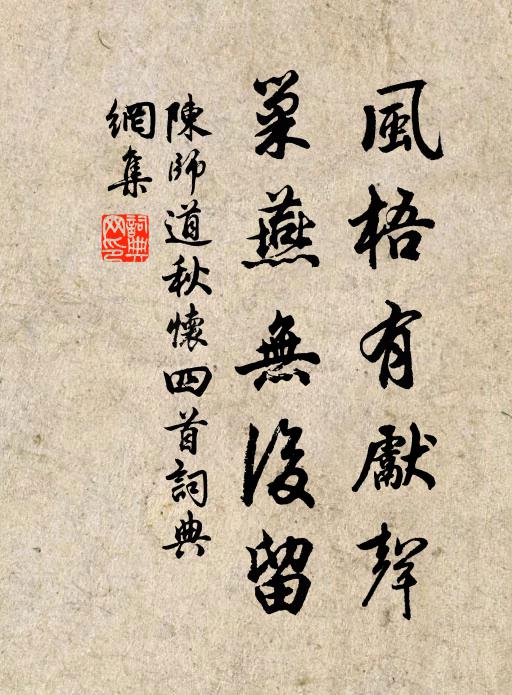 風梧有獻聲
巢燕無後留
陳師道秋懷四首詞典
網集
詞典網印